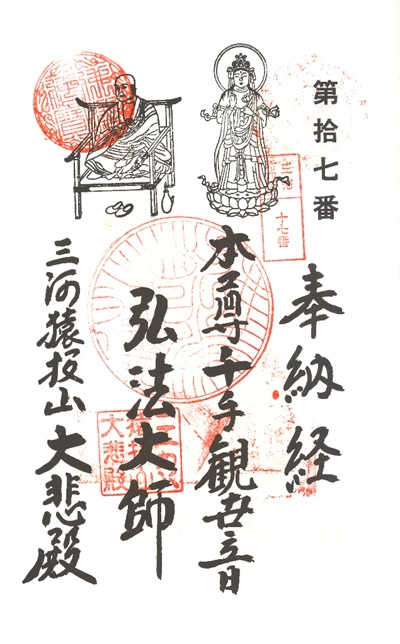 第拾七番
奉納経
本尊千手観世音
弘法大師
三河猿投山大悲殿
十七番
大悲殿